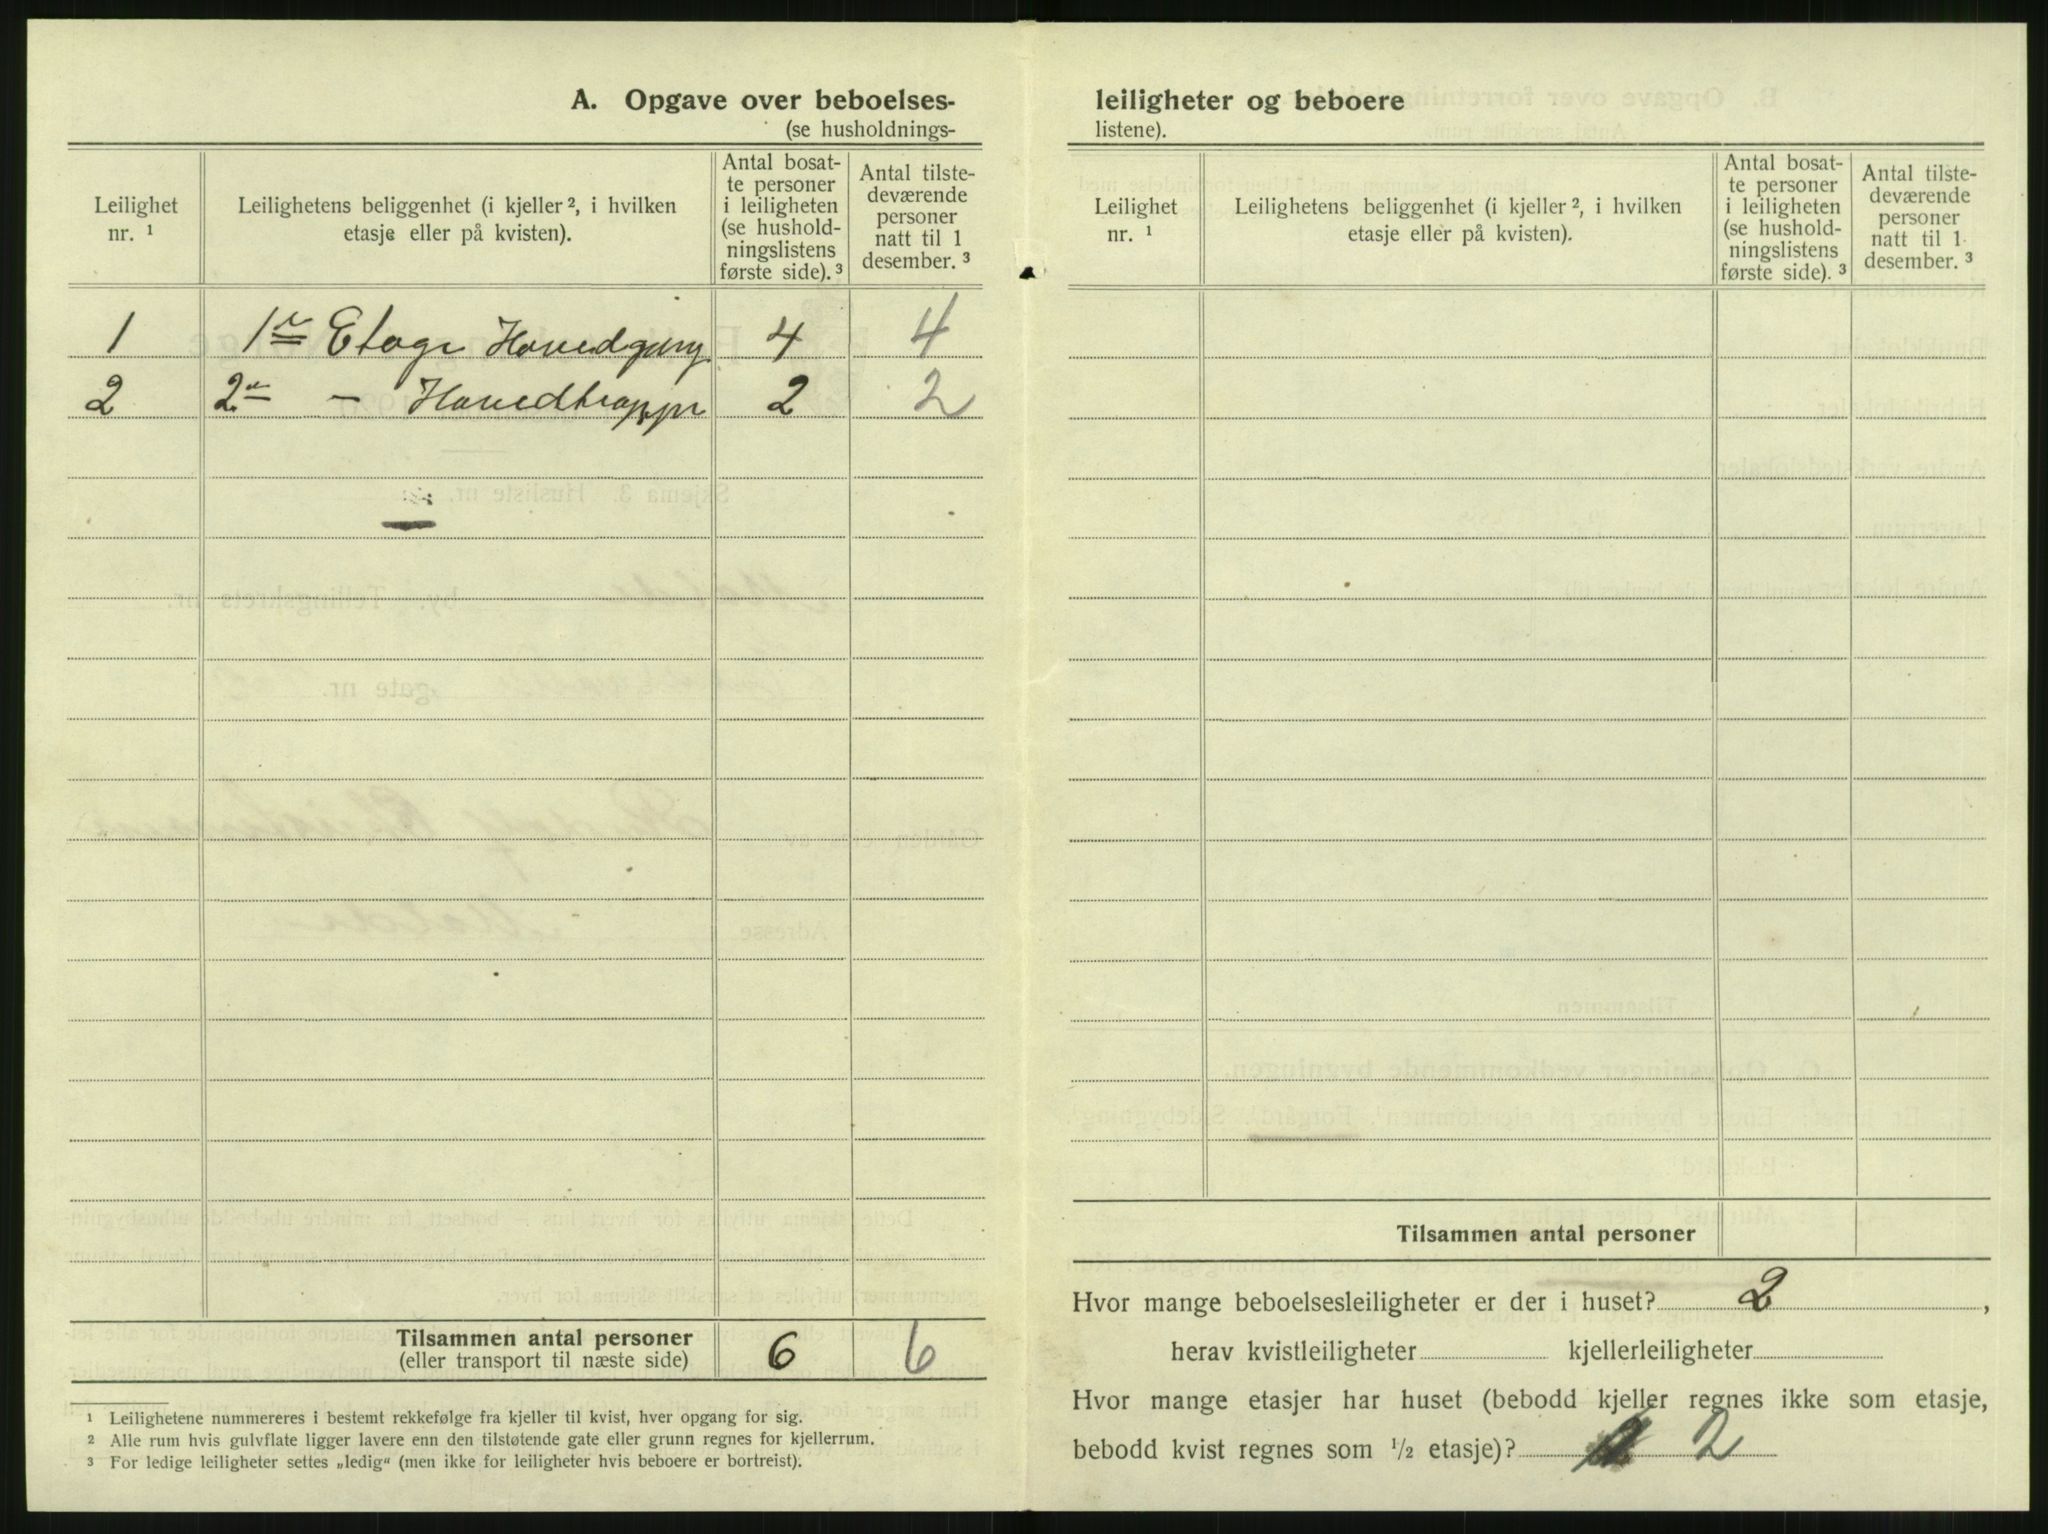 A. Opgave over beboelses-
(se husholdnings-
Leilighet
nr. ¹
Leilighetens beliggenhet (i kjeller ², i hvilken
etasje eller på kvisten).
Antal bosat-
te personer
i leiligheten
(se hushold-
ningslistens
første side). ³
Antal tilste-
deværende
personer
natt til 1
desember. ³
1 1ste Etage Hovedgang 4 4
2 2 — Hovedtrappe 2 2
Tilsammen antal personer
(eller transport til næste side) 6 6
¹ Leilighetene nummereres i bestemt rekkefølge fra kjeller til kvist, hver opgang for sig.
² Alle rum hvis gulvflate ligger lavere enn den tilstøtende gate eller grunn regnes for kjellerrum.
³ For ledige leiligheter settes „ledig“ (men ikke for leiligheter hvis beboere er bortreist).
leiligheter og beboere
listene).
Leilighet
nr. ¹
Leilighetens beliggenhet (i kjeller ², i hvilken
etasje eller på kvisten).
Antal bosat-
te personer
i leiligheten
(se hushold-
ningslistens
første side). ³
Antal tilste-
deværende
personer
natt til 1
desember. ³
Tilsammen antal personer
Hvor mange beboelsesleiligheter er der i huset? 2 ,
herav kvistleiligheter kjellerleiligheter
Hvor mange etasjer har huset (bebodd kjeller regnes ikke som etasje,
bebodd kvist regnes som ½ etasje)? 2